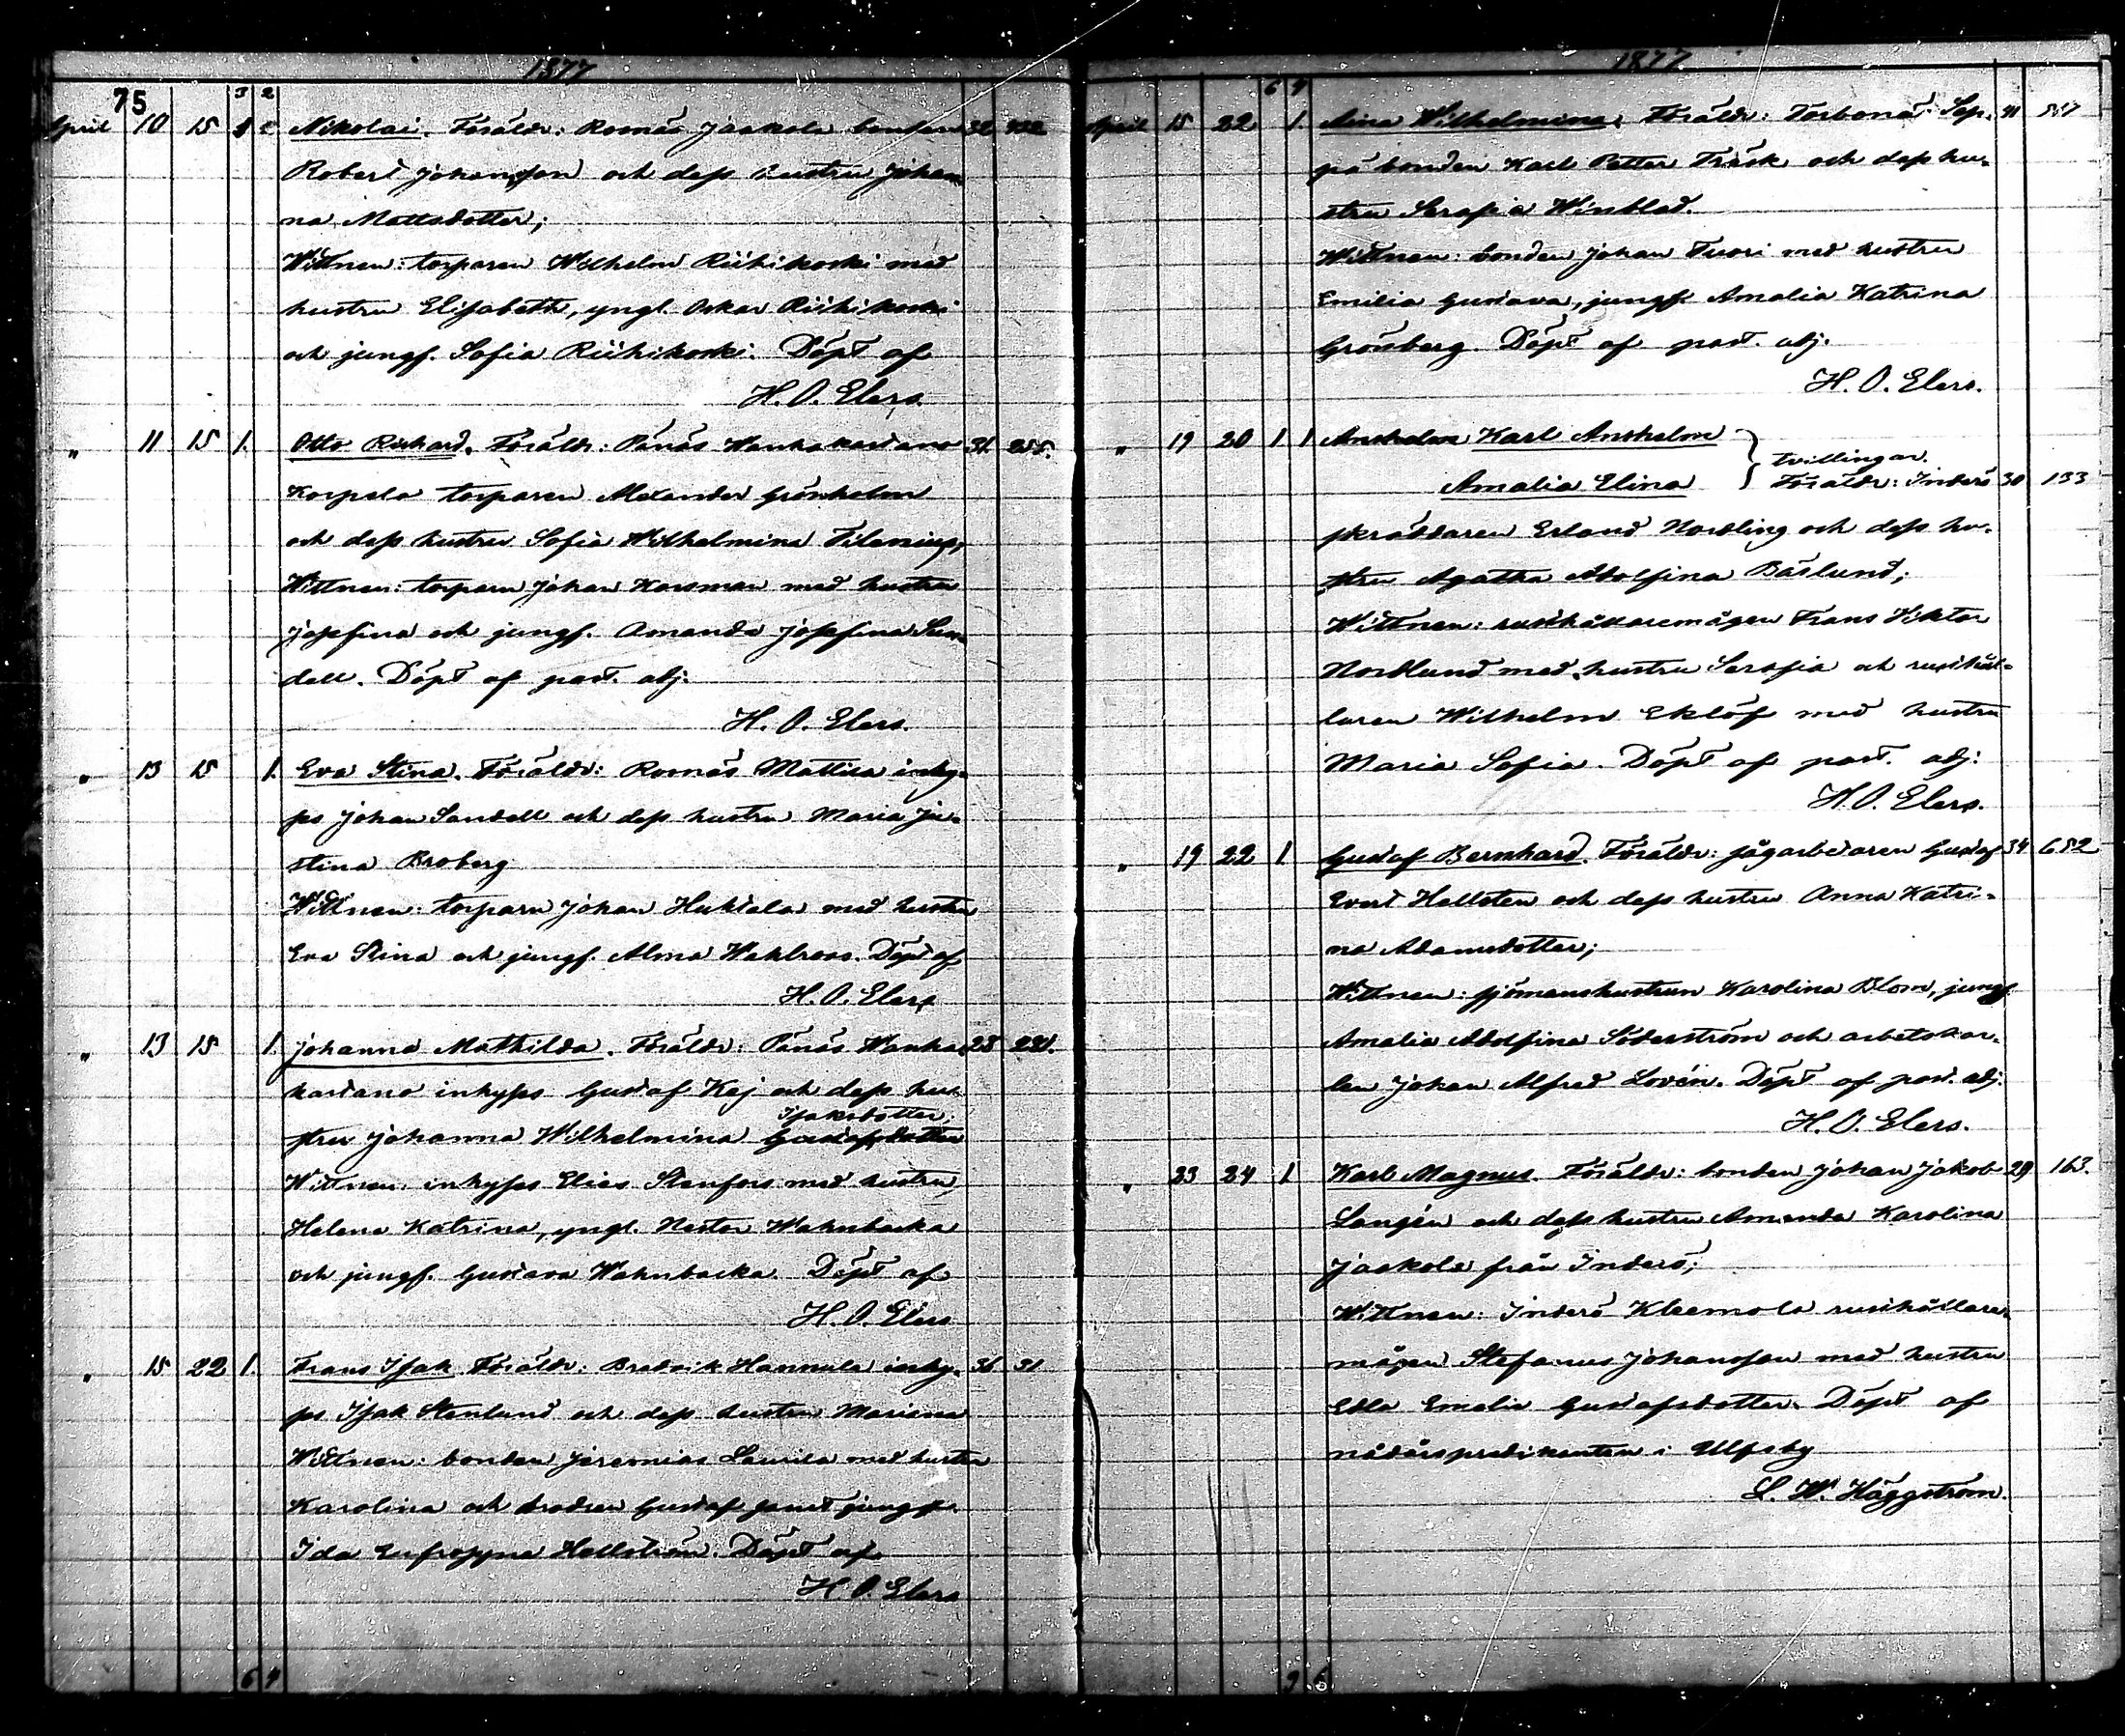 1877
75
3 2
April 10 15 Nikolai. Föräldr: Rosnäs Jaakola bonden 32
Robert Johansson och dess hustru Johan
na Mattsdotter;
Wittnen: torparen Wilhelm Riihikoski med
hustru Elisabeth, yngl. Oskar Riihikoski
och jungf. Sofia Riihikoski. Döpt af
H. O. Elers.
" 11 15 1. Otto Richard. Föräldr: Pånäs Wanhakartano 31.
Korpela torparen Alexander Grönholm
och dess hustru Sofia Wilhelmina Filenius,
Wittnen: torparn Johan Korsman med hustru
Josefina och jungf. Amanda Josefina Sun
dell. Döpt af past. adj.
H. O. Elers.
" 13 15 1. Eva Stina. Föräldr: Rosnäs Mattila inhy-
ses Johan Sandell och dess hustru Maria Ju-
stina Broberg
Wittnen: torparn Johan Huktala med hustru
Eva Stina och jungf. Alma Wahlroos. Döpt af
H. O. Elers
" 13 15 1. Johanna Mathilda. Föräldr: Pånäs Wanha 28 221.
kartano inhyses Gustaf Kej och dess hu-
Isaksdotter;
stru Johanna Wilhelmina Gustafsdotter
Wittnen: inhyses Elias Stenfors med hustru
Helena Katrina, yngl. Nestor Wahnbacka
och jungf. Gustava Wahnbacka. Döpt af
H. O. Elers
" 15 22 1. Frans Isak. Föräldr: Bredvik Hannula inhy- 31
ses Isak Stenlund och dess hustru Mariana
Wittnen: bonden Jeremias Laurila med hustru
Karolina och brodren Gustaf samt jungf.
Ida Eufrosyne Hellström. Döpt af
H. O. Elers
6 4
1877
6 4
April 15 22 1. Aina Wilhelmina. Föräldr: Torbonäs Sep-
pä bonden Karl Petter Träsk och dess hu-
stru Serafia Winblad.
Wittnen: bonden Johan Tuori med hustru
Emilia Gustava, jungf. Amalia Katrina
Grönberg. Döpt af past. adj.
H. O. Elers.
" 19 20 1 1 Anshelm Karl Anshelm
tvillingar.
Amalia Elina Föräldr: Inderö 30 133
skräddaren Erland Nordling och dess hu-
stru Agatha Adolfina Båslund;
Wittnen: rusthållaremågen Frans Viktor
Nordlund med hustru Serafia och rusthål-
laren Wilhelm Eklöf med hustru
Maria Sofia. Döpt af past. adj:
H. O. Elers.
" 19 22 1 Gustaf Bernhard. Föräldr: sågarbetaren Gustaf 34 652
Evert Hellsten och dess hustru Anna Katri-
na Adamsdotter;
Wittnen: sjömanshustrun Karolina Blom, jungf.
Amalia Adolfina Söderström och arbetskar-
len Johan Alfred Lovén. Döpt af past. adj.
H. O. Elers.
" 23 24 1 Karl Magnus. Föräldr: bonden Johan Jakob 29 163.
Langén och dess hustru Amanda Karolina
Jaakola från Inderö;
Wittnen: Inderö Kleemola rusthållare-
mågen Stefanus Johansson med hustru
Edla Emelia Gustafsdotter. Döpt af
nådårspredikanten i Ulfsby
L. W. Häggström.
9 5